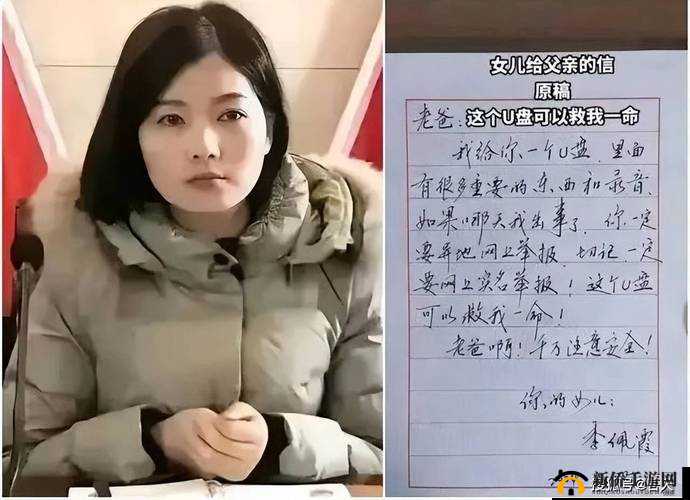 女儿给父亲的信
原稿
这个U盘可以救我一命
老爸:
我给你一个U盘,里面
有很多重要的东西和录音,
如果哪天我出事了,你一定
要异地网上举报,切记,一定
要网上实名举报!这个U盘
可以救我一命!
老爸啊!千万注意安全!
你的女儿:
李佩霞
新侨手游网